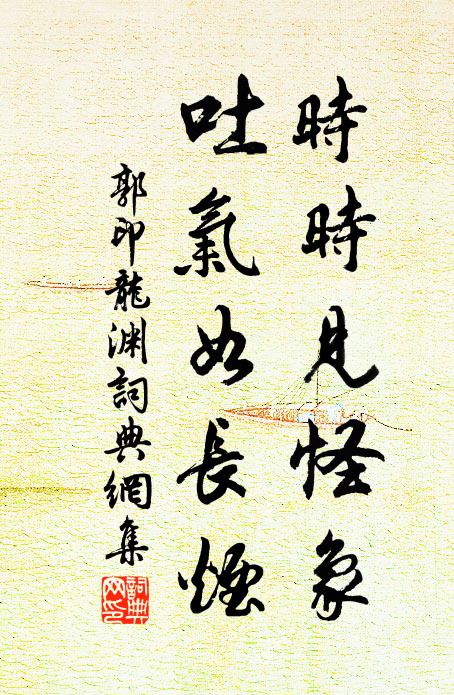 時時見怪象
吐氣如長煙
郭印龍淵詞典網集
詞典
网印